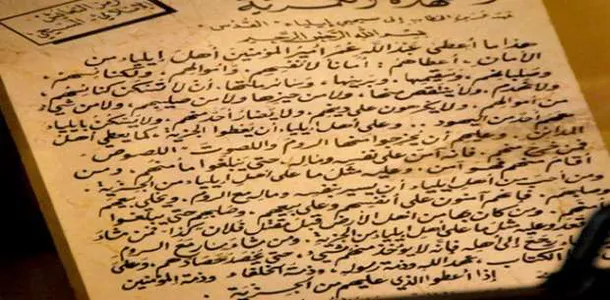 بسم الله الرحمن الرحيم
هذا ما أعطى عبد الله عمر أمير المؤمنين أهل إيلياء من
الأمان، أعطاهم: أماناً لأنفسهم وأموالهم، ولكنائسهم
وصلبانهم، وسقيمها وبريئها وسائر ملتها. أن لا تسكن كنائسهم
ولا تهدم، ولا ينتقص منها ولا من حيزها ولا من صليبهم، ولا من شيء
من أموالهم. ولا يكرهون على دينهم، ولا يضار أحد منهم. ولا يسكن بإيلياء
معهم أحد من اليهود. وعلى أهل إيلياء أن يعطوا الجزية. كما يعطي أهل
المدائن. وعليهم أن يخرجوا منها الروم واللصوت "اللصوص"
فمن خرج منهم فإنه آمن على نفسه وماله حتى يبلغوا مأمنهم. ومن
أقام منهم فهو آمن. وعليه مثل ما على أهل إيلياء من الجزية.
ومن أحب من أهل إيلياء أن يسير بنفسه وماله مع الروم. ويخلي بيعهم
وصلبهم. فإنهم آمنون على أنفسهم وعلى بيعهم. وصلبهم حتى يبلغوا
ومن كان بها من أهل الأرض قبل مقتل فلان فمن شاء
قعد وعليه مثل ما على أهل إيلياء من الجزية. ومن شاء سار مع الروم
رجع إلى أهله فإنه لا يؤخذ منهم شيء حتى يحصد حصادهم. وعلى
الكتاب عهد الله وذمة رسوله. وذمة الخلفاء. وذمة المؤمنين
إذا أعطوا الذي عليهم من الجزية